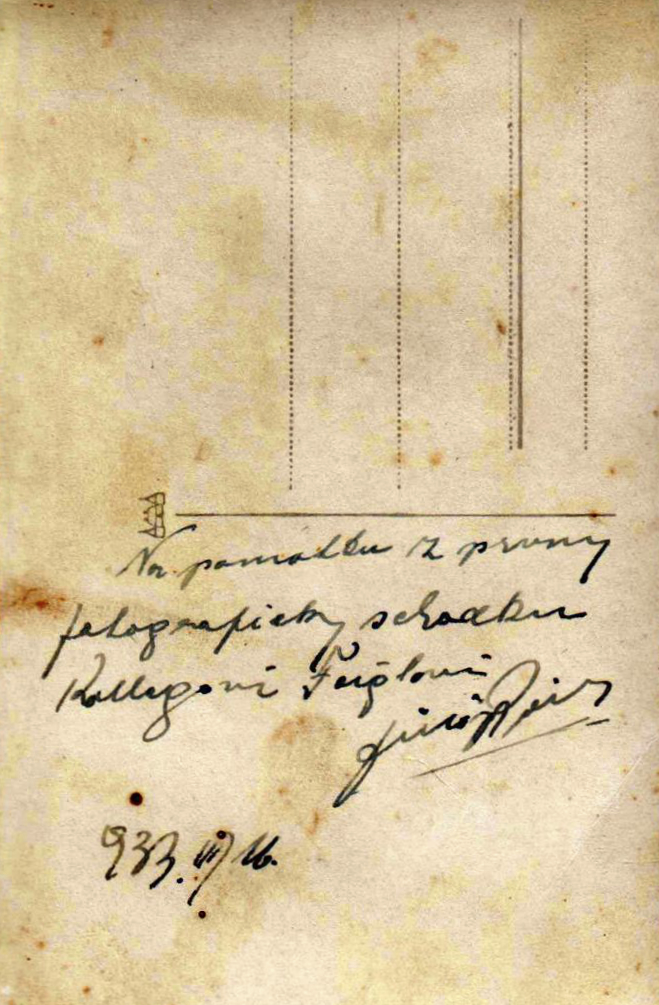 Na pamatku z prvny
fotograficky schodku
Kollegovi Feiglovi
933. III/16.